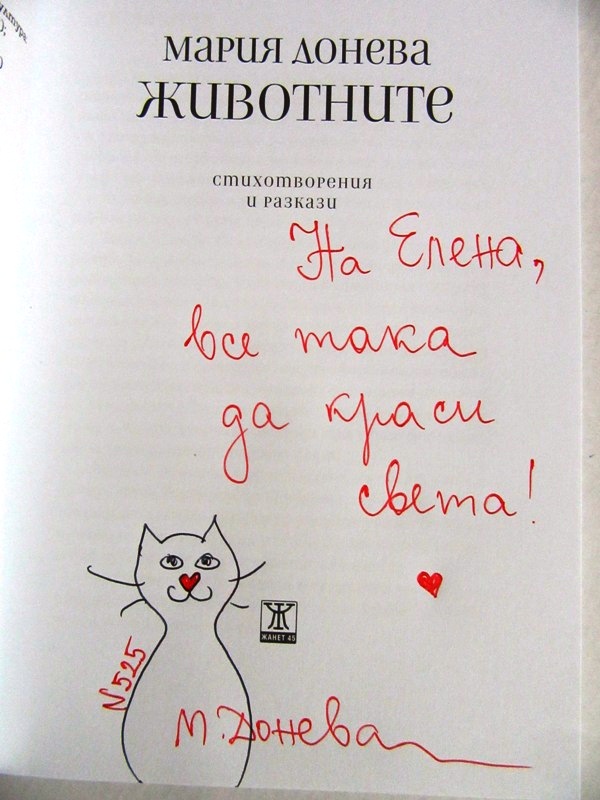 МАРИЯ ДОНЕВА
ЖИВОТНИТЕ
СТИХОТВОРЕНИЯ
И РАЗКАЗИ
На Елена,
все така
да краси
света!
Ж
ЖАНЕТ 45
N525
М. Донева